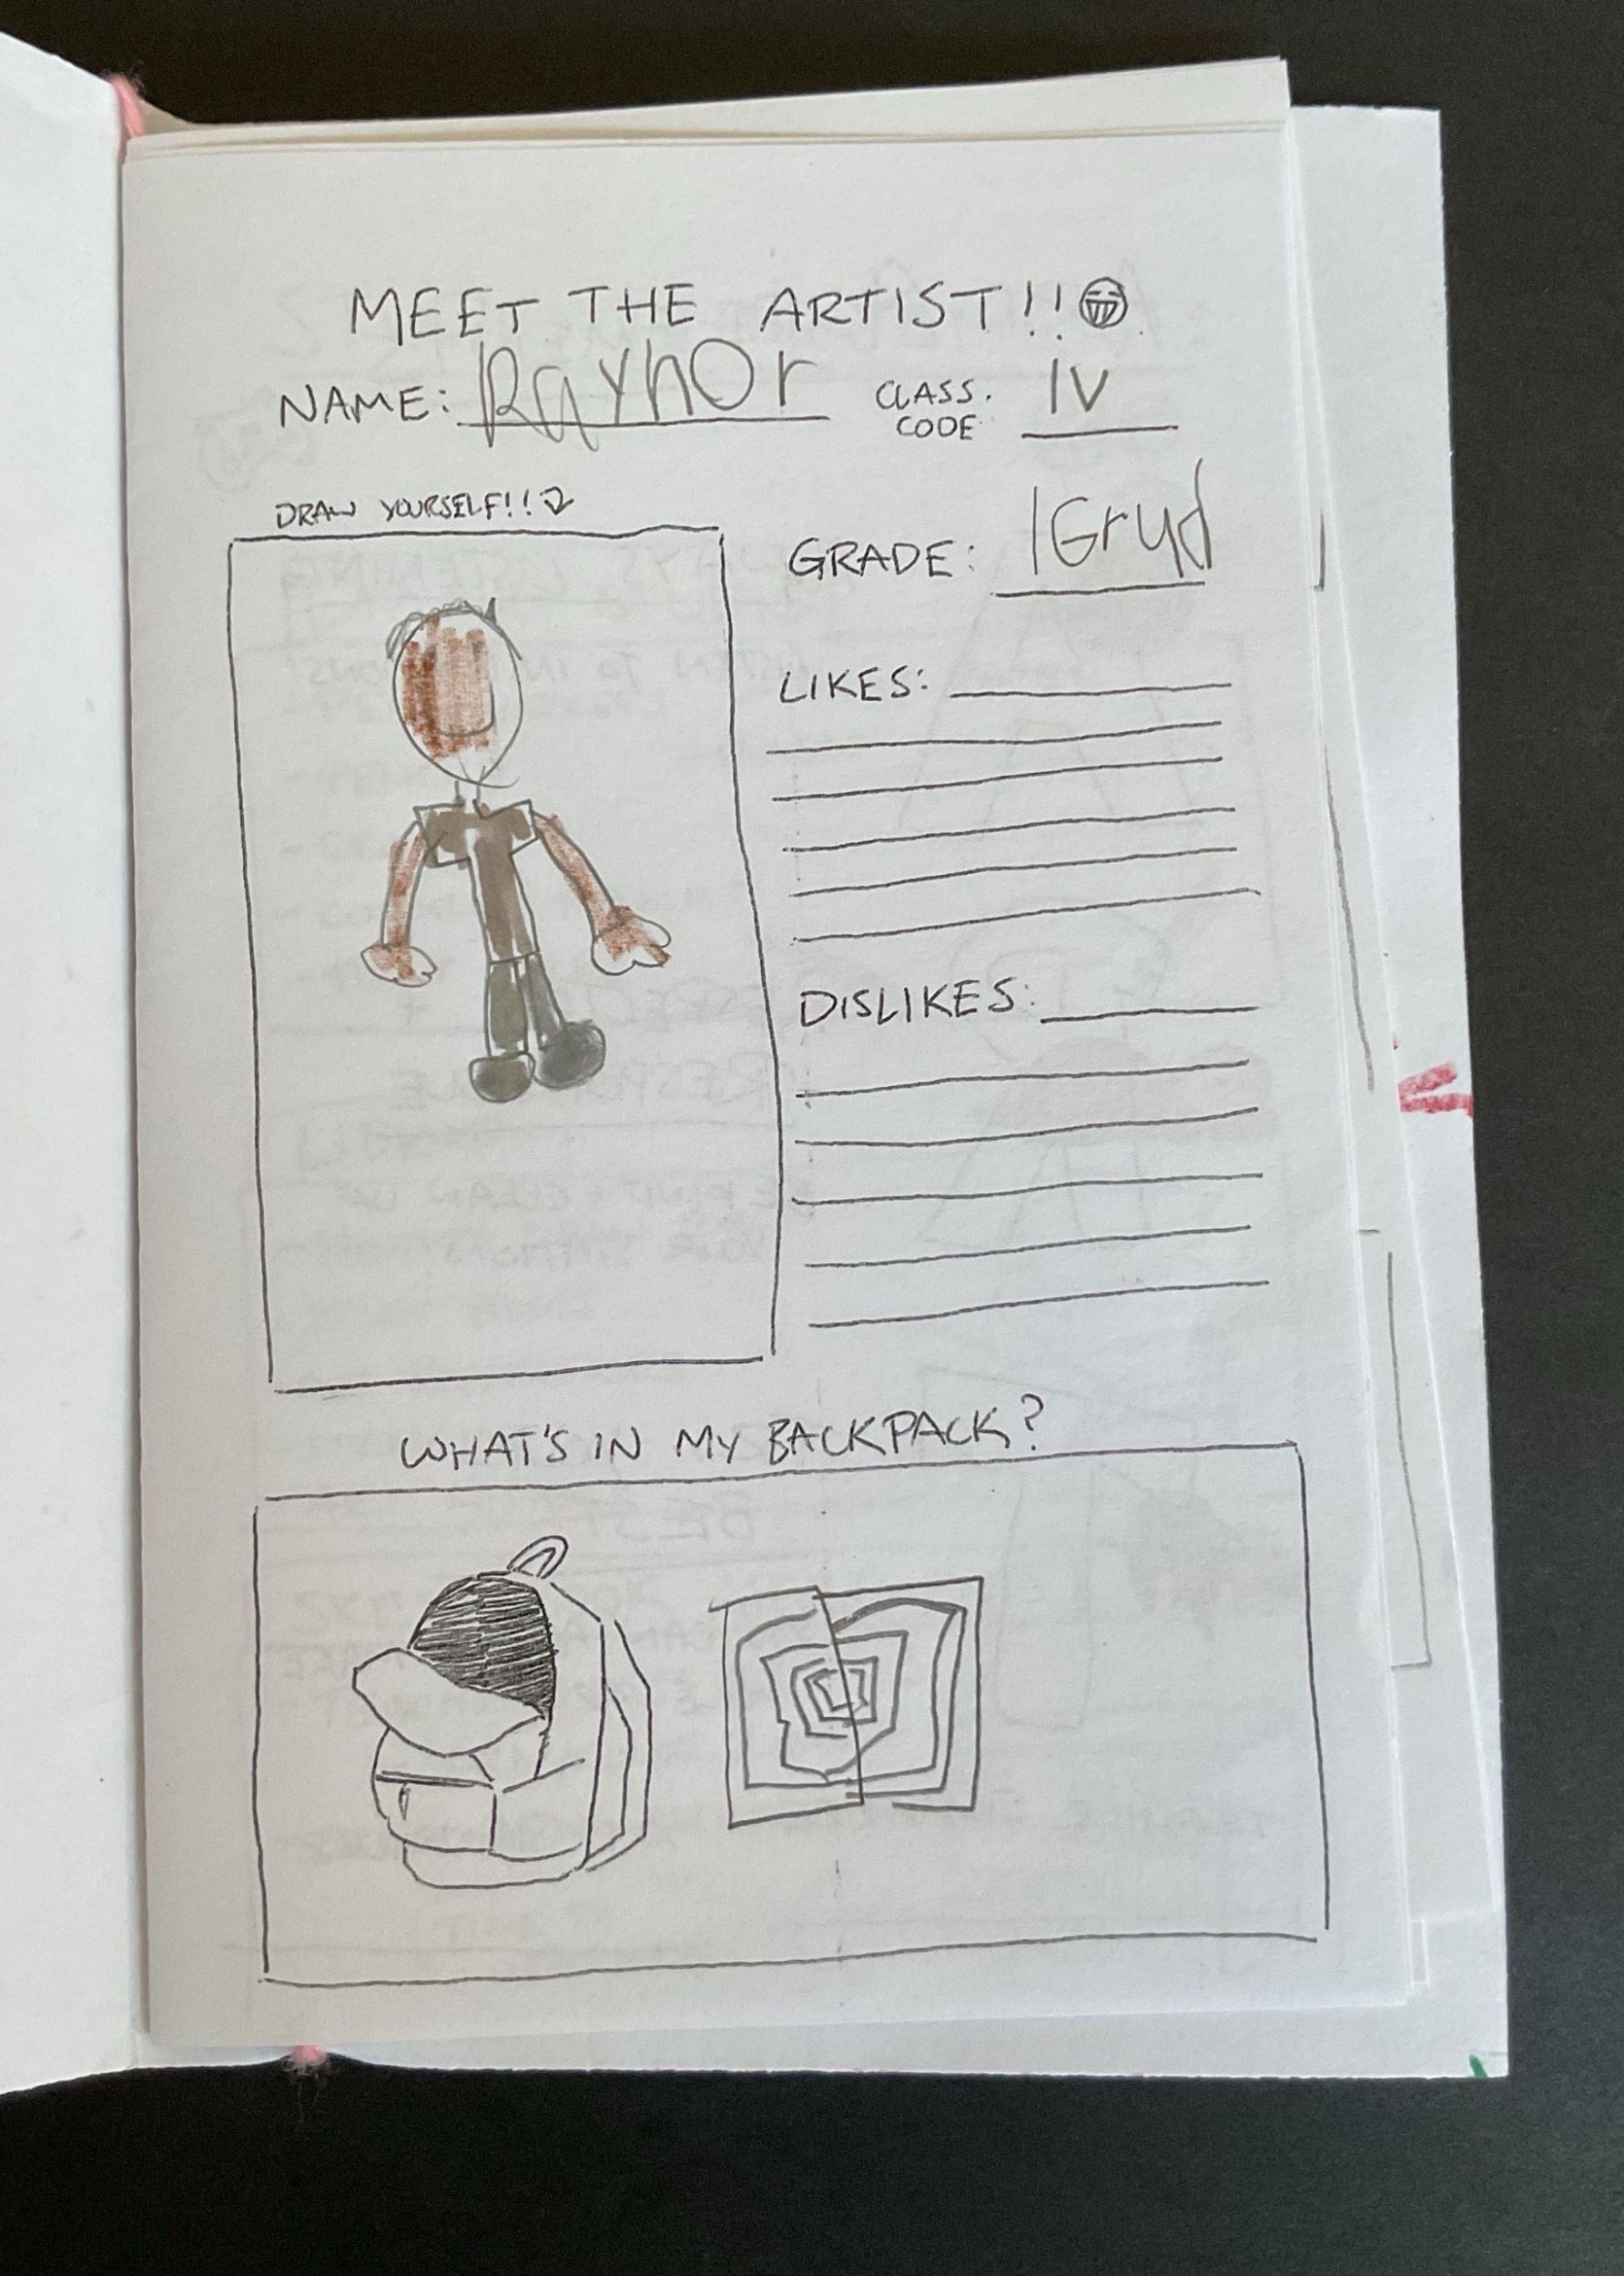 MEET THE ARTIST!!
NAME: RaynOr CLASS. CODE IV
DRAW YOURSELF!!
GRADE: 1Gryd
LIKES:
DISLIKES:
WHAT'S IN MY BACKPACK?